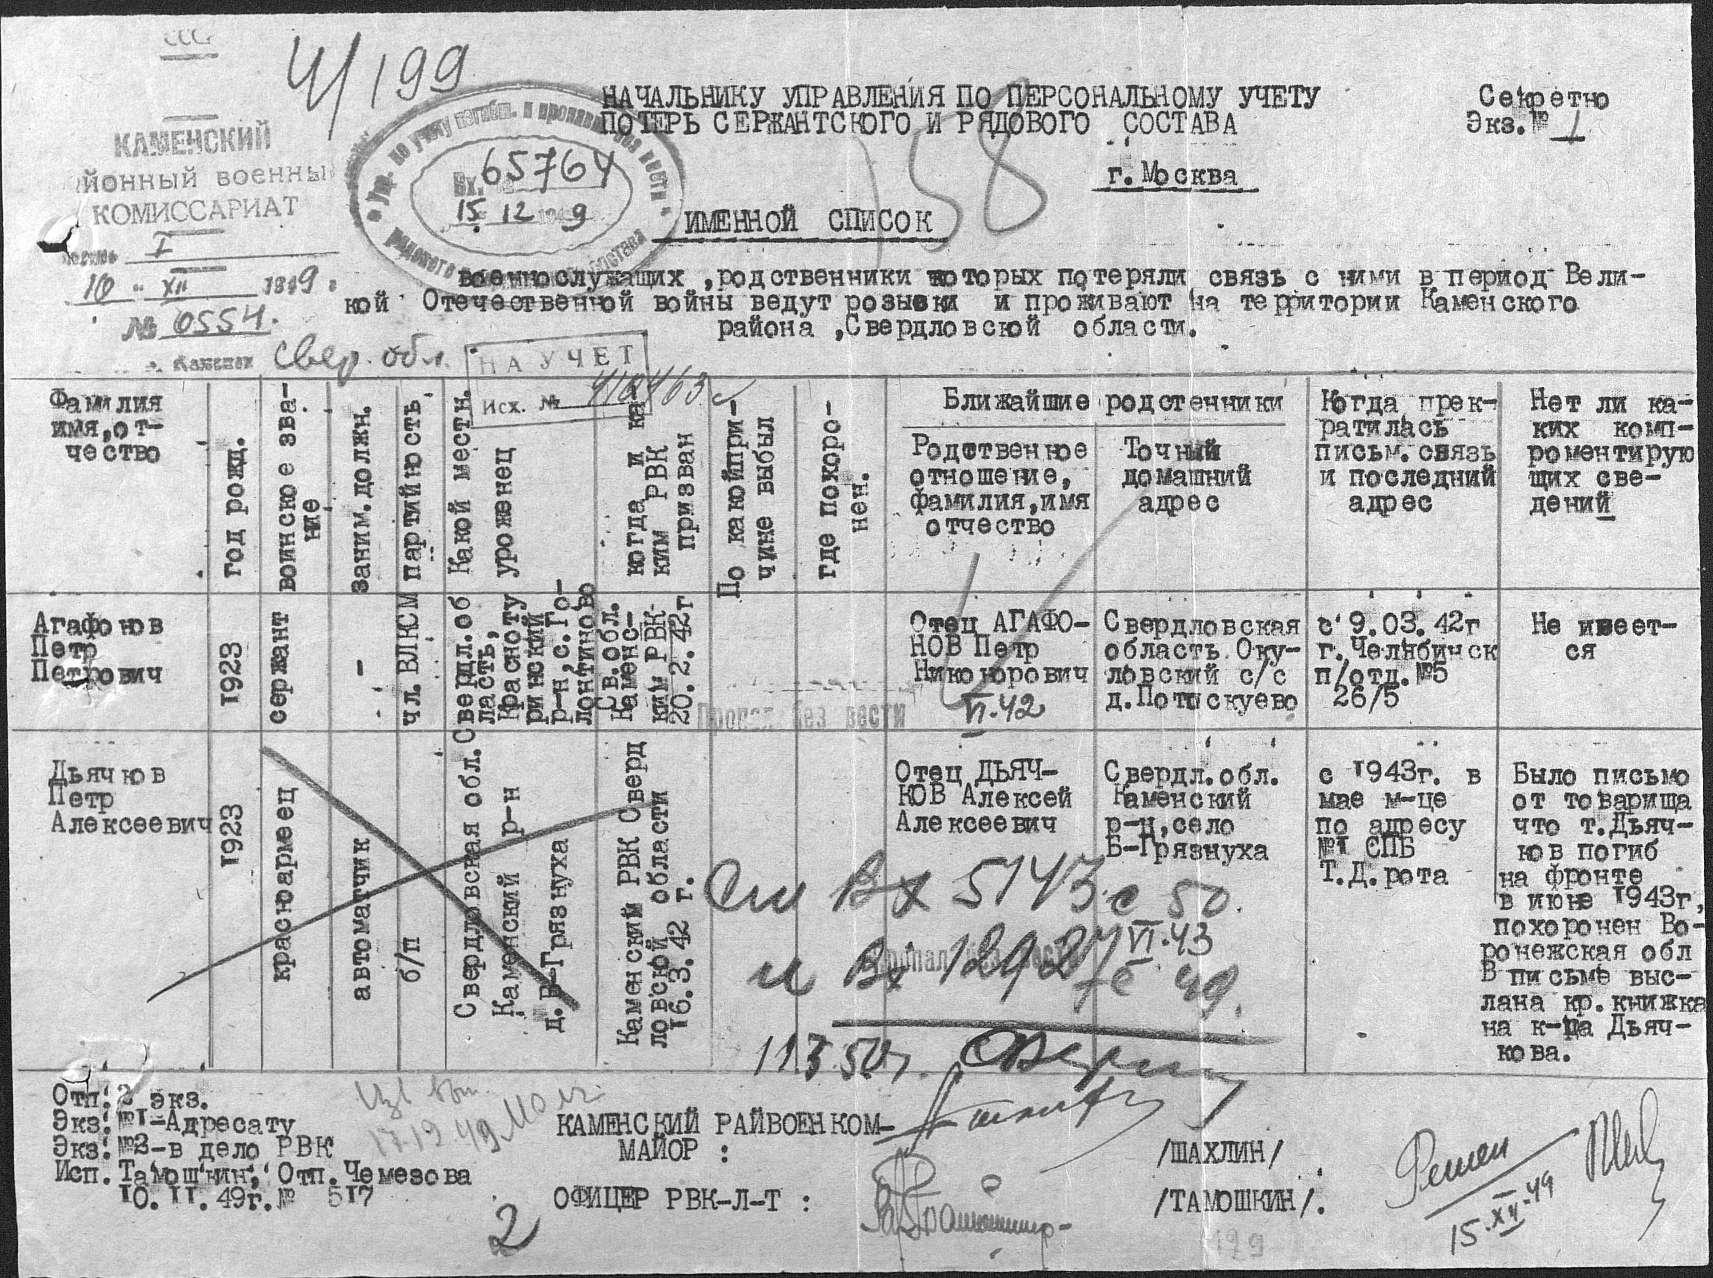 4/199
КАМЕНСКИЙ
йонный военны
КОМИССАРИАТ
I
10 " XII 1949г.
№ 0554.
Каменск Свер. обл.
Упр. по учету погибш. и пропавш. без вести
рядового
Вх. 65764
15 12 1949
НАЧАЛЬНИКУ УПРАВЛЕНИЯ ПО ПЕРСОНАЛЬНОМУ УЧЕТУ
ПОТЕРЬ СЕРЖАНТСКОГО И РЯДОВОГО СОСТАВА
Секретно
Экз.№ 1
г.Москва
158
ИМЕННОЙ СПИСОК
военнослужащих ,родственники которых потеряли связь с ними в период Вели-
кой Отечественной войны ведут розыски и проживают на территории Каменского
района ,Свердловской области.
НА УЧЕТ
Исх. №
Фамилия
имя,от-
чество
год рожд.
воинское зва-
ние
заним.должн.
партийность
Какой местн.
уроженец
когда и ка-
ким РВК
призван
По какойпри-
чине выбыл
где похоро-
нен.
Ближайшие родстенники
Родственное
отношение,
фамилия,имя
отчество
Точный
домашний
адрес
Когда прек-
ратилась
письм.связь
и последний
адрес
Нет ли ка-
ких комп-
роментирую
щих све-
дений
Агафонов
Петр
Петрович
1923
сержант
-
чл. ВЛКСМ
Свердл.об
ласть,
Красноту
ринский
р-н,с.Го-
лонтиново
Св.обл.
Каменс-
ким РВК-
20.2.42г
Пропал без вести
Отец АГАФО-
НОВ Петр
Никонорович
VI.42
Свердловская
область Оку-
ловский с/с
д.Потаскуево
с 9.03.42г
г.Челябинск
п/отд.№5
26/5
Не имеет-
ся
Дьячков
Петр
Алексеевич
1923
красноармеец
автоматчик
б/п
Свердловская обл.
Каменский р-н
д.Б-Грязнуха
Каменский РВК Сверд
ловской области
16.3.42 г.
Отец ДЬЯЧ-
КОВ Алексей
Алексеевич
Свердл.обл.
Каменский
р-н,село
Б-Грязнуха
с 1943г. в
мае м-це
по адресу
№1 СПБ
Т.Д.рота
Было письмо
от товарища
что т.Дьяч-
ков погиб
на фронте
в июне 1943г,
похоронен Во-
ронежская обл
В письме выс-
лана кр.книжка
на к-ца Дьяч-
кова.
См Вх 5143 с 50.
VI.43
и Вх 12927 с 49.
11350г.
Отп. 2 экз.
Экз.№1-Адресату
Экз.№2-в дело РВК
Исп.Тамошкин, Отп.Чемезова
10.11.49г.№ 517
КАМЕНСКИЙ РАЙВОЕНКОМ-
МАЙОР : /ШАХЛИН/
ОФИЦЕР РВК-Л-Т : /ТАМОШКИН/.
2
Решен
15.XII.49
199